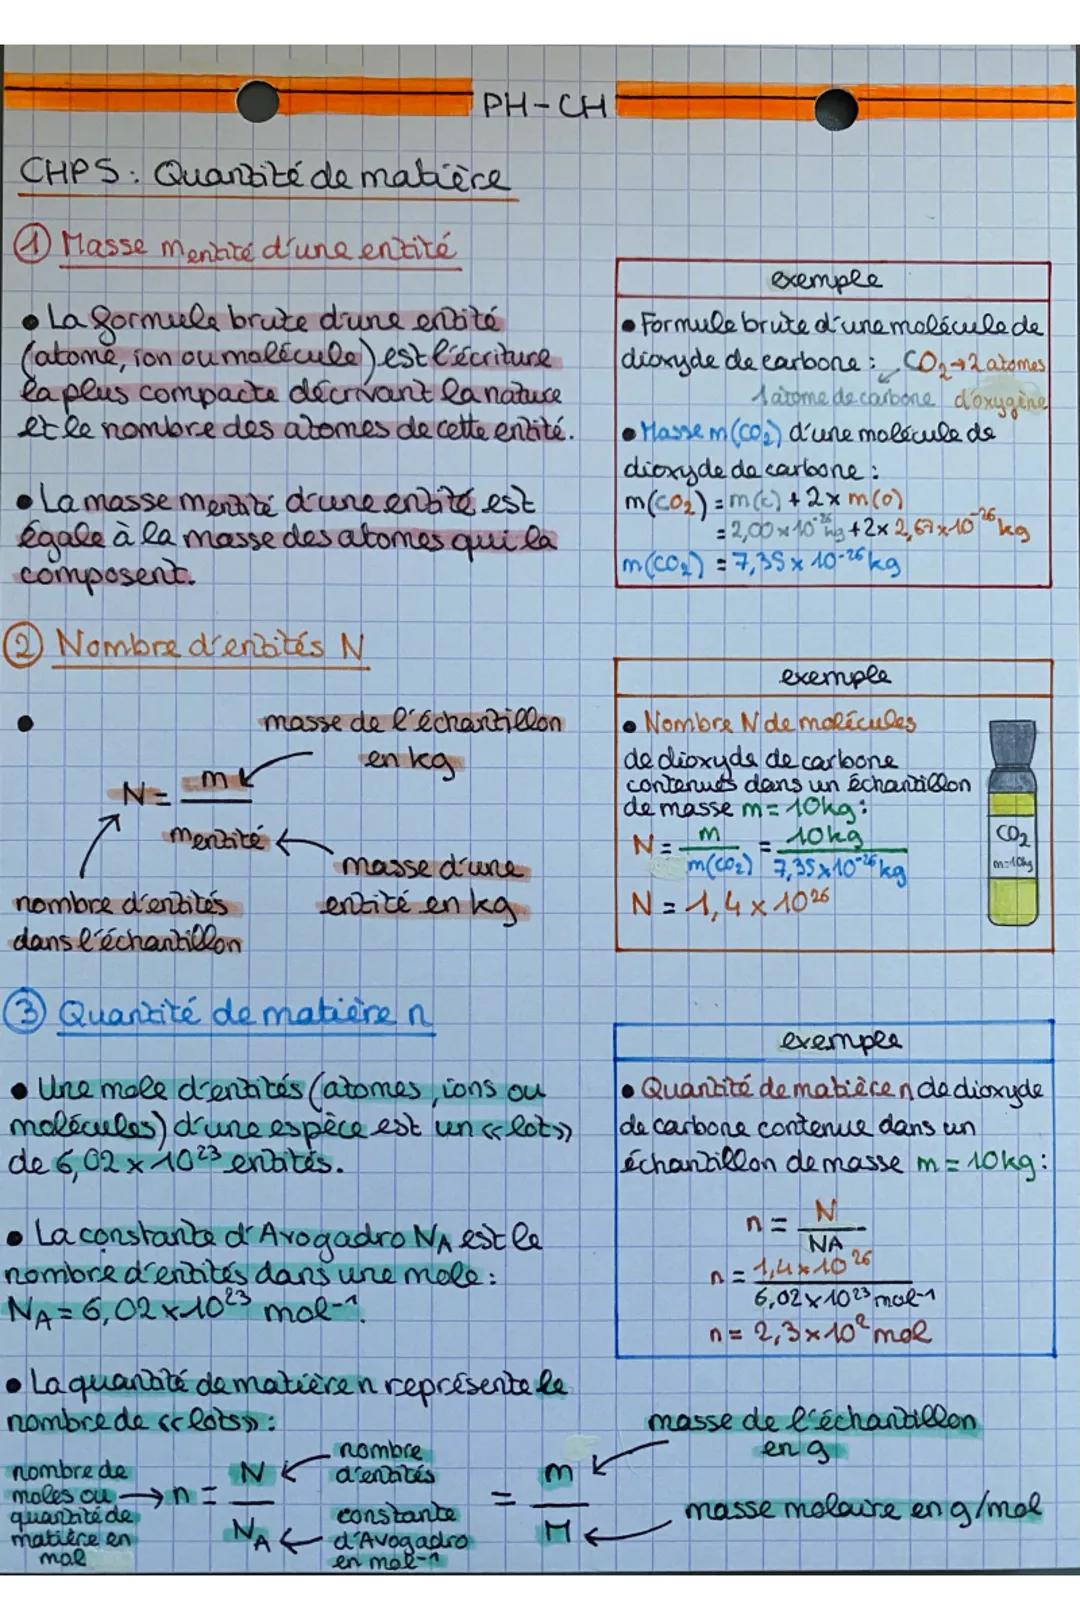 PH-CH
CHP5: Quantité de matière
① Masse mentité d'une entité
• La formule brute d'une entité
(atome, ion ou molécule) est l'écriture
la plus compacte décrivant la nature
et le nombre des atomes de cette entité.
• La masse mentité d'une entité est
égale à la masse des atomes qui la
composent.
exemple
• Formule brute d'une molécule de
dioxyde de carbone : CO₂ → 2 atomes
1 atome de carbone d'oxygène
• Masse m(CO₂) d'une molécule de
dioxyde de carbone :
m(CO₂) = m(C) + 2 x m(O)
= 2,00 x 10⁻²⁶ kg + 2 x 2,67 x 10⁻²⁶ kg
m(CO₂) = 7,35 x 10⁻²⁶ kg
② Nombre d'entités N
• masse de l'échantillon
en kg
N = m
mentité
masse d'une
entité en kg
nombre d'entités
dans l'échantillon
exemple
• Nombre N de molécules
de dioxyde de carbone
contenues dans un échantillon
de masse m = 10kg :
N = m / m(CO₂) = 10kg / 7,35 x 10⁻²⁶ kg
N = 1,4 x 10²⁶
CO₂
m=10kg
③ Quantité de matière n
• Une mole d'entités (atomes, ions ou
molécules) d'une espèce est un «lot»
de 6,02 x 10²³ entités.
• La constante d'Avogadro NA est le
nombre d'entités dans une mole :
NA = 6,02 x 10²³ mol⁻¹.
exemple
• Quantité de matière n de dioxyde
de carbone contenue dans un
échantillon de masse m = 10kg :
n = N / NA
n = 1,4 x 10²⁶ / 6,02 x 10²³ mol⁻¹
n = 2,3 x 10² mol
• La quantité de matière n représente le
nombre de «lots» :
nombre de
moles ou
quantité de
matière en
mol
→ n = N / NA = m / M
nombre
d'entités
constante
d'Avogadro
en mol⁻¹
masse de l'échantillon
en g
masse molaire en g/mol